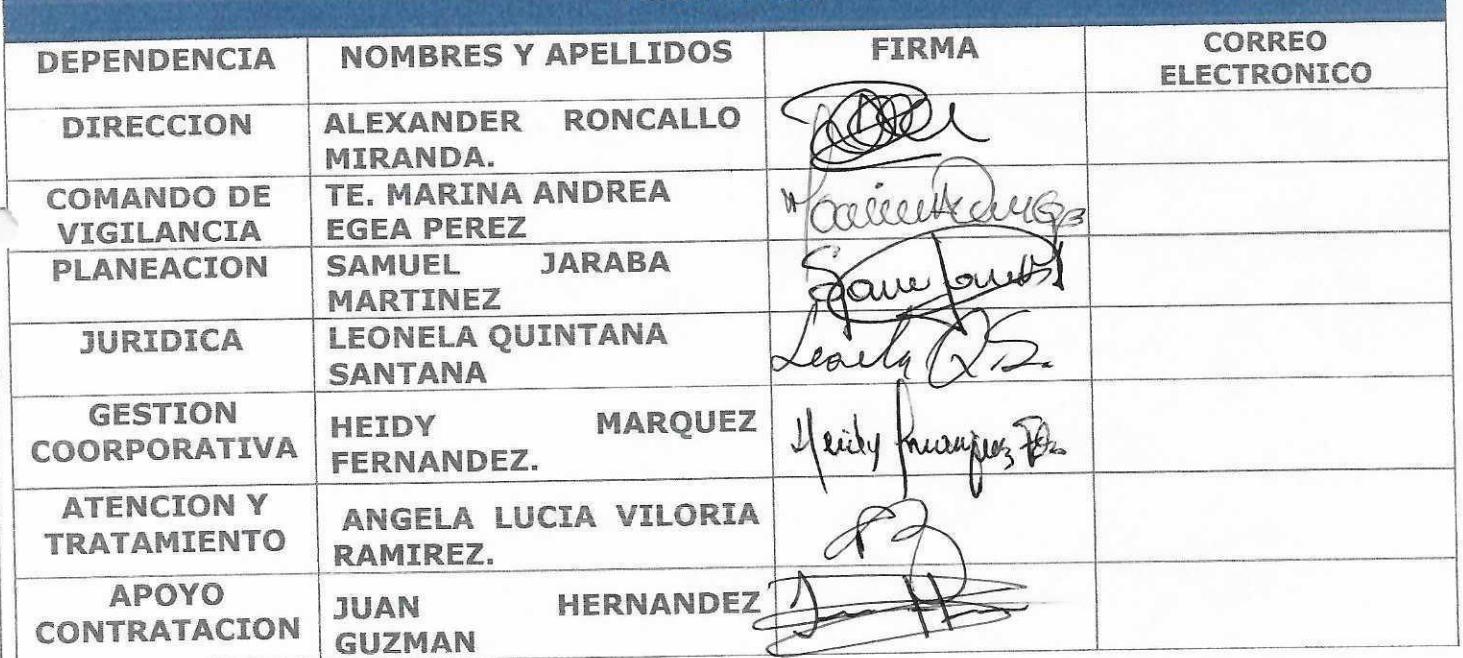 DEPENDENCIA
NOMBRES Y APELLIDOS
FIRMA
CORREO
ELECTRONICO
DIRECCION
ALEXANDER RONCALLO
MIRANDA.
COMANDO DE
VIGILANCIA
TE. MARINA ANDREA
EGEA PEREZ
PLANEACION
SAMUEL JARABA
MARTINEZ
JURIDICA
LEONELA QUINTANA
SANTANA
Leonela Q S.
GESTION
COORPORATIVA
HEIDY MARQUEZ
FERNANDEZ.
Heidy Marquez
ATENCION Y
TRATAMIENTO
ANGELA LUCIA VILORIA
RAMIREZ.
APOYO
CONTRATACION
JUAN HERNANDEZ
GUZMAN